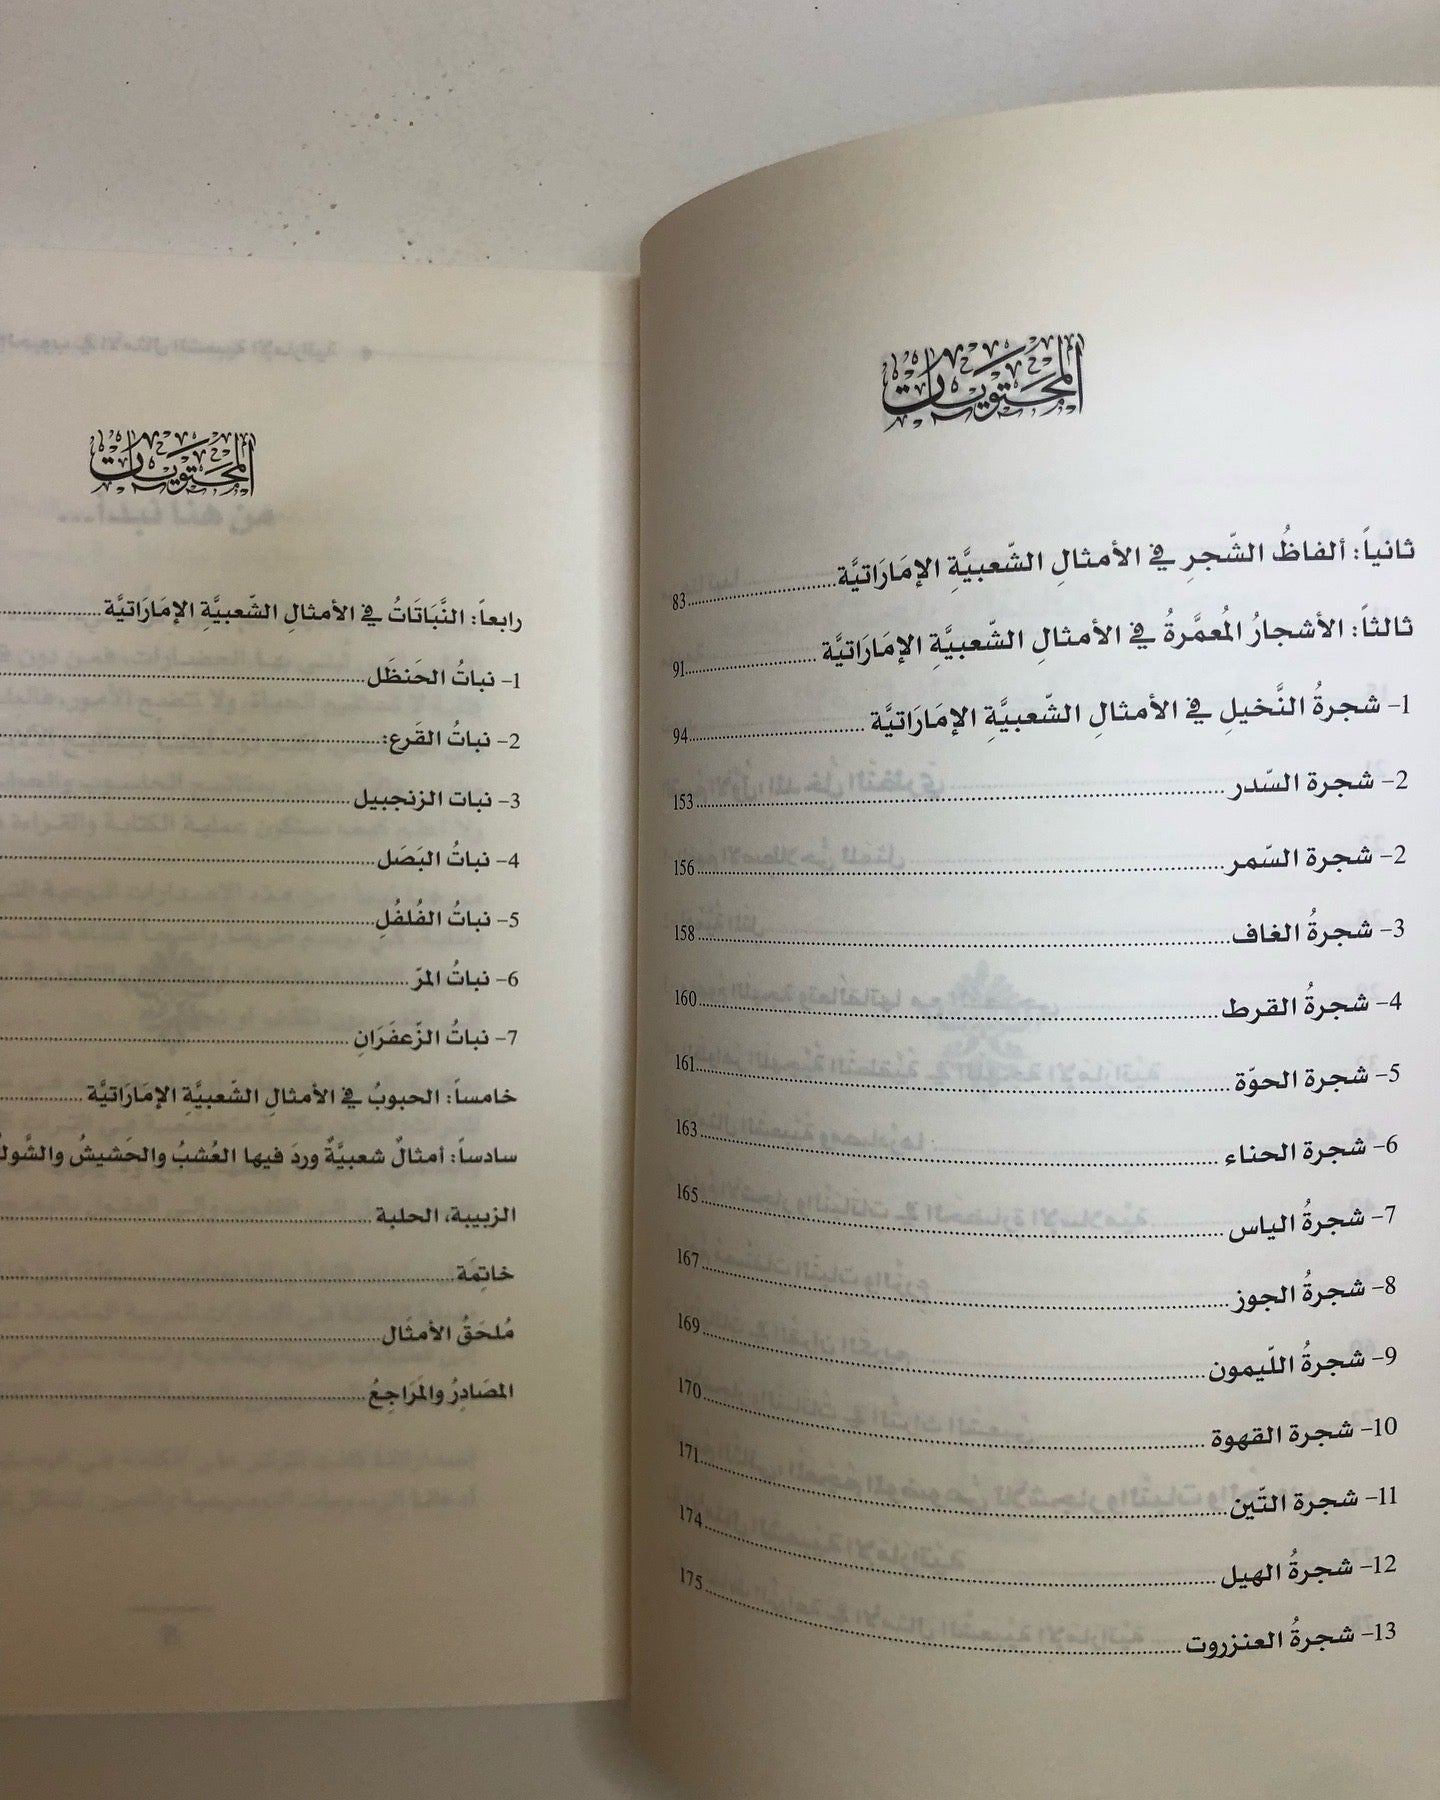 المحتويات
ثانياً: ألفاظُ الشّجرِ في الأمثالِ الشّعبيَّةِ الإمَارَاتيَّة ........ 83
ثالثاً: الأشجارُ المُعمَّرةُ في الأمثالِ الشّعبيَّةِ الإمَارَاتيَّة ........ 91
1- شجرةُ النَّخيلِ في الأمثالِ الشّعبيَّةِ الإمَارَاتيَّة ........ 94
2- شجرة السّدر ........ 153
2- شجرة السّمر ........ 156
3- شجرةُ الغاف ........ 158
4- شجرةُ القرط ........ 160
5- شجرة الحوّة ........ 161
6- شجرة الحناء ........ 163
7- شجرةُ الياس ........ 165
8- شجرةُ الجوز ........ 167
9- شجرةُ اللّيمون ........ 169
10- شجرة القهوة ........ 170
11- شجرة التّين ........ 171
12- شجرةُ الهيل ........ 174
13- شجرةُ العنزروت ........ 175
المحتويات
رابعاً: النَّبَاتَاتُ في الأمثالِ الشّعبيَّةِ الإمَارَاتيَّة ........
1- نباتُ الحَنظَل ........
2- نباتُ القَرع: ........
3- نبات الزنجبيل ........
4- نباتُ البَصَل ........
5- نباتُ الفُلفُلِ ........
6- نباتُ المرّ ........
7- نباتُ الزّعفَرَانِ ........
خامساً: الحبوبُ في الأمثالِ الشّعبيَّةِ الإمَارَاتيَّة ........
سادساً: أمثالٌ شعبيَّةٌ وردَ فيها العُشبُ والحَشيشُ
الزبيبة، الحلبة ........
خاتِمَة ........
مُلحَقُ الأمثَال ........
المصَادِرُ والمَرَاجِعُ ........